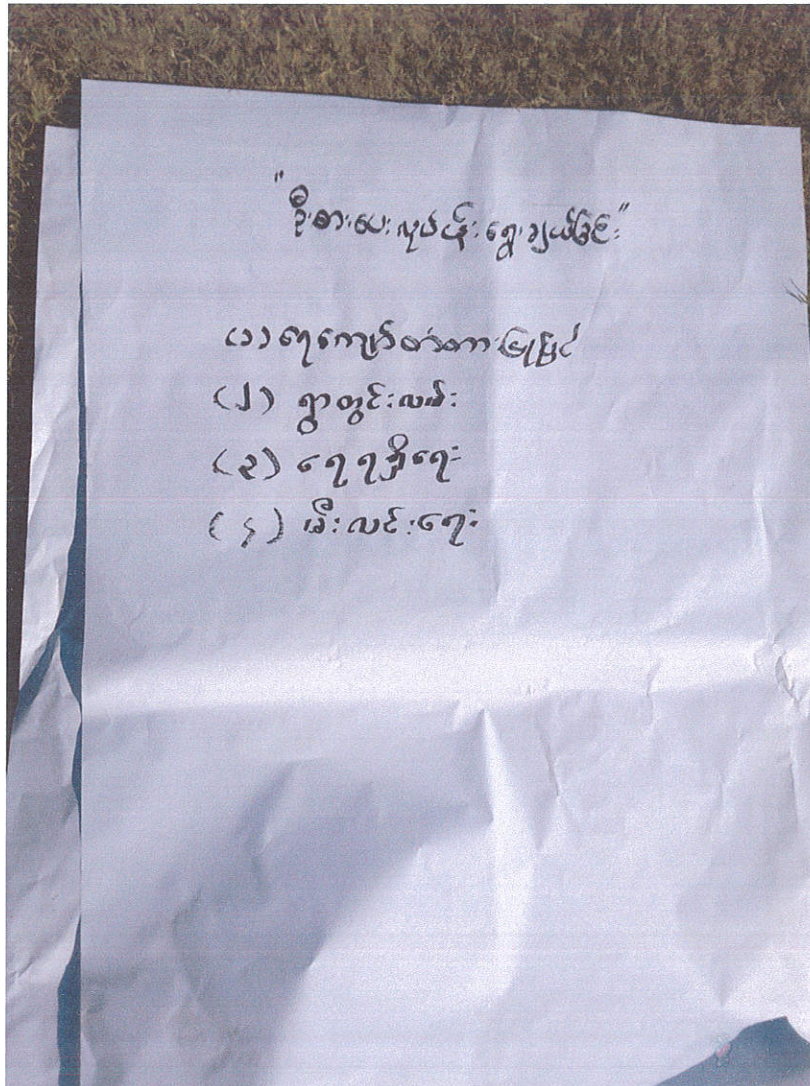 "ဦးစားပေးလုပ်ငန်းရွေးချယ်ခြင်း"
(၁) ရေကျော်တံတားပြုပြင်
(၂) ရွာတွင်းလမ်း
(၃) ရေရရှိရေး
(၄) မီးလင်းရေး